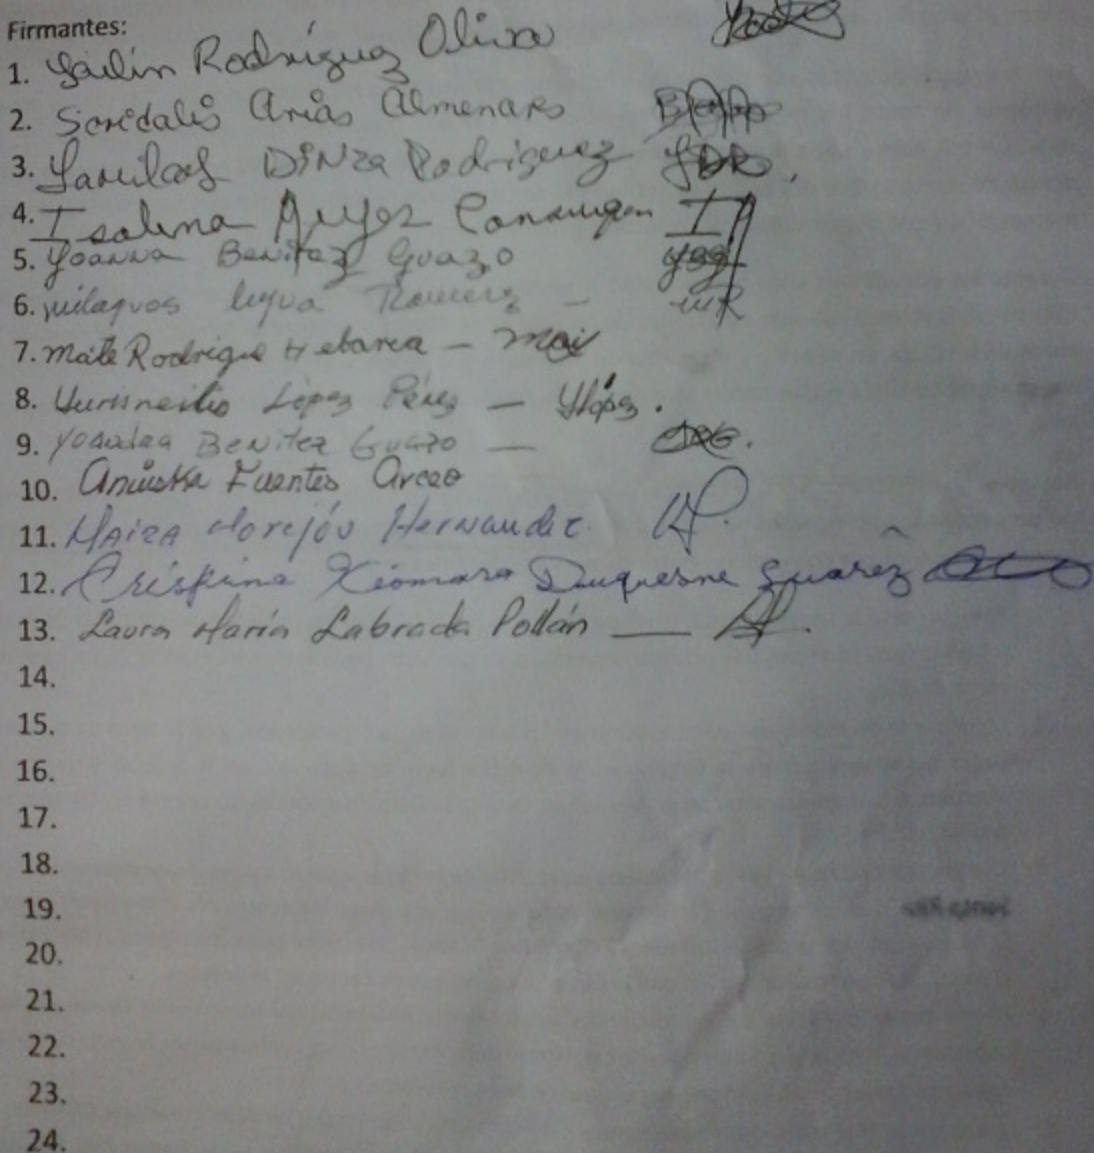 Firmantes:
1. Yailin Rodríguez Oliva
2. Soridalis Arias Almenaro
3. Yamilas Dinza Rodriguez YDR
4. Isalina Auyer IA
5. Yoanna Benitez Guazo YBG
6. milagros leyva Ramirez - mR
7. Maite Rodrigue Hebarea - Mai
8. Yurisneilis López Pérez - Ylópez.
9. Yosadea Benitez Guazo -
10. Aniuska Fuentes Arceo
11. Maiza Morejón Hernandez
12. Crispina Xiomara Duquesne Suarez
13. Laura María Labrada Pollán
14.
15.
16.
17.
18.
19.
20.
21.
22.
23.
24.